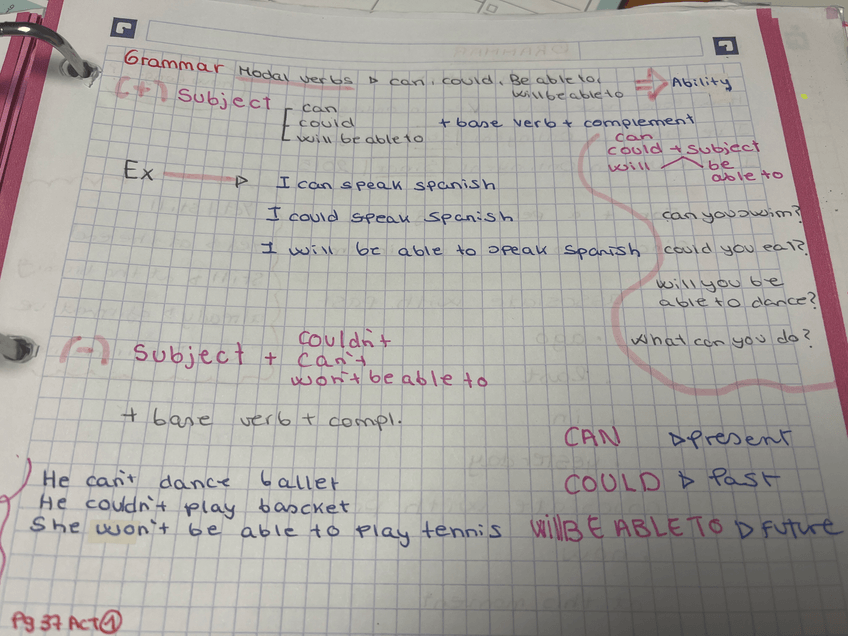 Grammar Modal verbs ▷ can, could, Be able to, ⇒ Ability
will be able to
(+) Subject
can
could + base verb + complement
will be able to
can
could + subject
will be
able to
Ex → I can speak spanish
I could speak spanish
I will be able to speak spanish
can you swim?
could you eat?
will you be
able to dance?
what can you do?
(-) Subject +
couldn't
can't
won't be able to
+ base verb + compl.
CAN ▷ present
COULD ▷ Past
will BE ABLE TO ▷ Future
He can't dance ballet
He couldn't play bascket
She won't be able to play tennis
Pg 37 Act 1